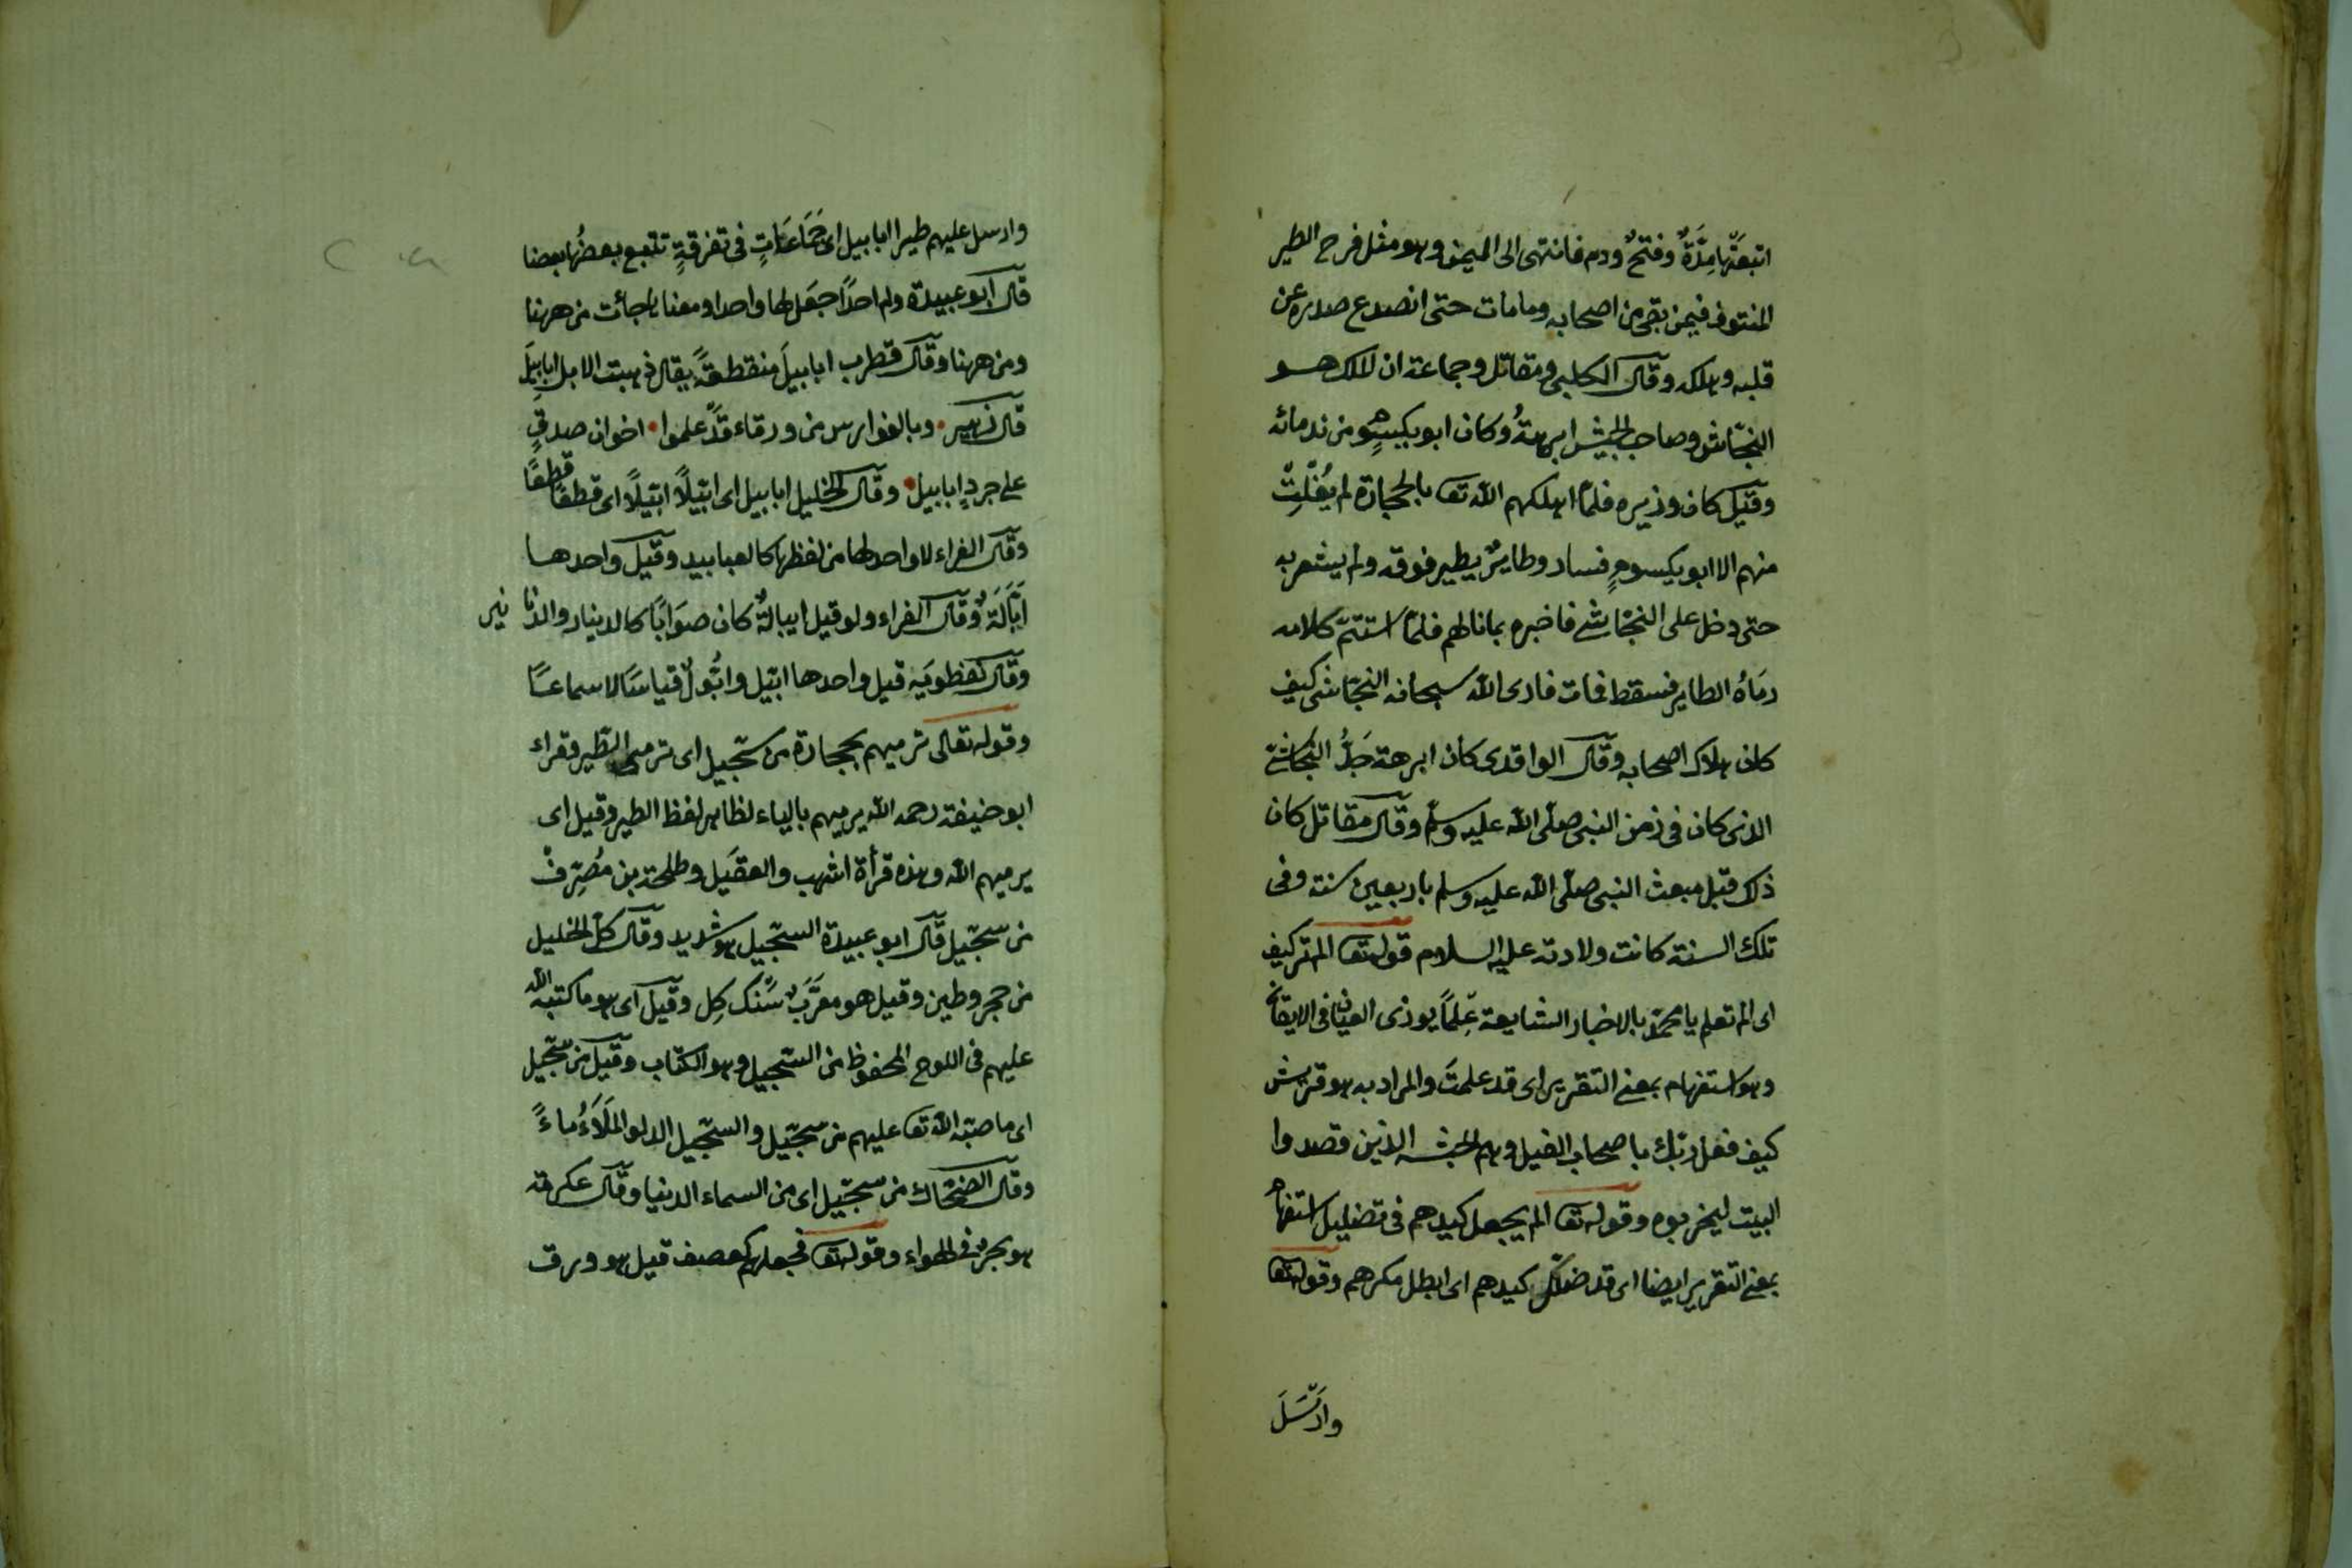 اتبعتها مِدَّةٌ وفتحٌ ودم فانتهى الى اليمن وهو مثل فرح الطير
المنتوف فيمن بقى من اصحابه وما مات حتى انصدع صدره عن
قلبه وهلك وقال الكلبى ومقاتل وجماعة ان الملك هو
النجّاشى وصاحب الجيش ابرهةُ وكان ابو يكسوم من ندمائه
وقيل كان وزيره فلمّا اهلكهم الله تعا بالحجارة لم يُفْلِتْ
منهم الا ابو يكسومٍ فسار وطايرٌ يطير فوقه ولم يشعر به
حتى دخل على النجّاشى فاخبره بما نالهم فلمّا استتمّ كلامه
رمَاهُ الطاير فسقط فمات فارى الله سبحانه النجّاشى كيف
كان هلاك اصحابه وقال الواقدى كان ابرهة جَدُّ النجّاشى
الذى كان فى زمن النبى صلّى الله عليه وسلّم وقال مقاتل كان
ذلك قبل مبعث النبى صلّى الله عليه وسلم باربعين سنة وفى
تلك السنة كانت ولادته عليه السلام قوله تعا الم تر كيف
اى الم تعلم يا محمّد بالاخبار الشايعة عِلمًا يوازى العيان فى الايقان
وهو استفهام بمعنى التقرير اى قد علمتَ والمراد به هو قريش
كيف فعل ربّك باصحاب الفيل وهم الحبشه الذين قصدوا
البيت ليخربوه وقوله تعا الم يجعل كيدهم فى تضليل استفهام
بمعنى التقرير ايضا اى قد ضلّل كيدهم اى ابطل مكرهم وقوله تعا
وارْسَلَ
وارسل عليهم طيرا ابابيل اى جَمَاعَاتٍ فى تفرقةٍ تتبع بعضُها بعضا
قال ابو عبيدة ولم احدًا جعل لها واحدا ومعناها جائت من ههنا
ومن ههنا وقال قطرب ابابيلَ منقطعةً يقال ذهبت الابل ابابيلَ
قال زهير • وبالفوارس من ورقاء قد علموا • اخوان صدقٍ
على جردٍ ابابيل • وقال الخليل ابابيل اى ابّيلًا ابّيلًا اى قطعًا قطعًا
وقال الفراء لا واحد لها من لفظها كالعبابيد وقيل واحدها
اِبَّالَةٌ وقال الفراء ولو قيل ايبالةٌ كان صوَابًا كالدينار والدنانير
وقال نفطويَه قيل واحدها ابّيل وابُّولٌ قياسًا لا سماعًا
وقوله تعالى ترميهم بحجارة من سجّيل اى ترمى الطير وقراء
ابو حنيفة رحمه الله يرميهم بالياء لظاهر لفظ الطير وقيل اى
يرميهم الله وهذه قرأة اشهب والعقيل وطلحة بن مُصَرِّف
من سجّيل قال ابو عبيدة السجّيل هو شديد وقال الخليل
من حجر وطين وقيل هو معرَّبُ سَنْك كِل وقيل اى هو ما كتبه الله
عليهم فى اللوح المحفوظ من السّجيل وهو الكتاب وقيل من سجّيل
اى ما صبّه الله تعا عليهم من سجّيل والسجّيل الدلو المَلَاَءُ ماءً
وقال الضحّاك من سجّيل اى من السماء الدنيا وقال عكرمة
هو بحرٌ فى الهواء وقوله تعا فجعلهم كعصف قيل هو ورق